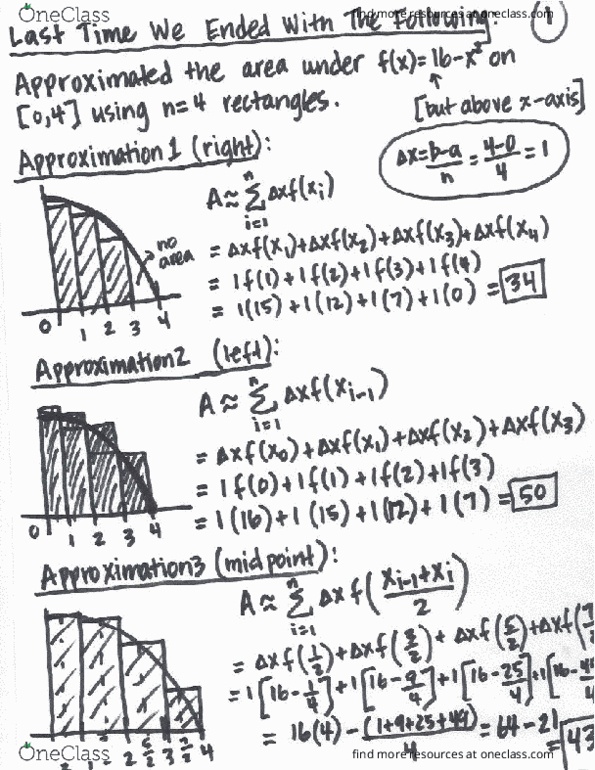 OneClass
find more resources at oneclass.com
Last Time We Ended With The Following:
1
Approximated the area under f(x)=16-x² on
[0,4] using n=4 rectangles.
[but above x-axis]
Approximation 1 (right):
Δx = b-a/n = 4-0/4 = 1
A ≈ Σ i=1 n Δxf(xi)
no area
= Δxf(x1)+Δxf(x2)+Δxf(x3)+Δxf(x4)
= 1f(1)+1f(2)+1f(3)+1f(4)
= 1(15)+1(12)+1(7)+1(0) = 34
0 1 2 3 4
Approximation2 (left):
A ≈ Σ i=1 n Δxf(xi-1)
= Δxf(x0)+Δxf(x1)+Δxf(x2)+Δxf(x3)
= 1f(0)+1f(1)+1f(2)+1f(3)
= 1(16)+1(15)+1(12)+1(7) = 50
0 1 2 3 4
Approximation3 (midpoint):
A ≈ Σ i=1 n Δxf(xi-1+xi/2)
= Δxf(1/2)+Δxf(3/2)+Δxf(5/2)+Δxf(7
= 1[16-1/4]+1[16-9/4]+1[16-25/4]+1[16-
= 16(4)-(1+9+25+49)/4 = 64-21
= 43
1 2 5/2 3 7/2 4
OneClass
find more resources at oneclass.com